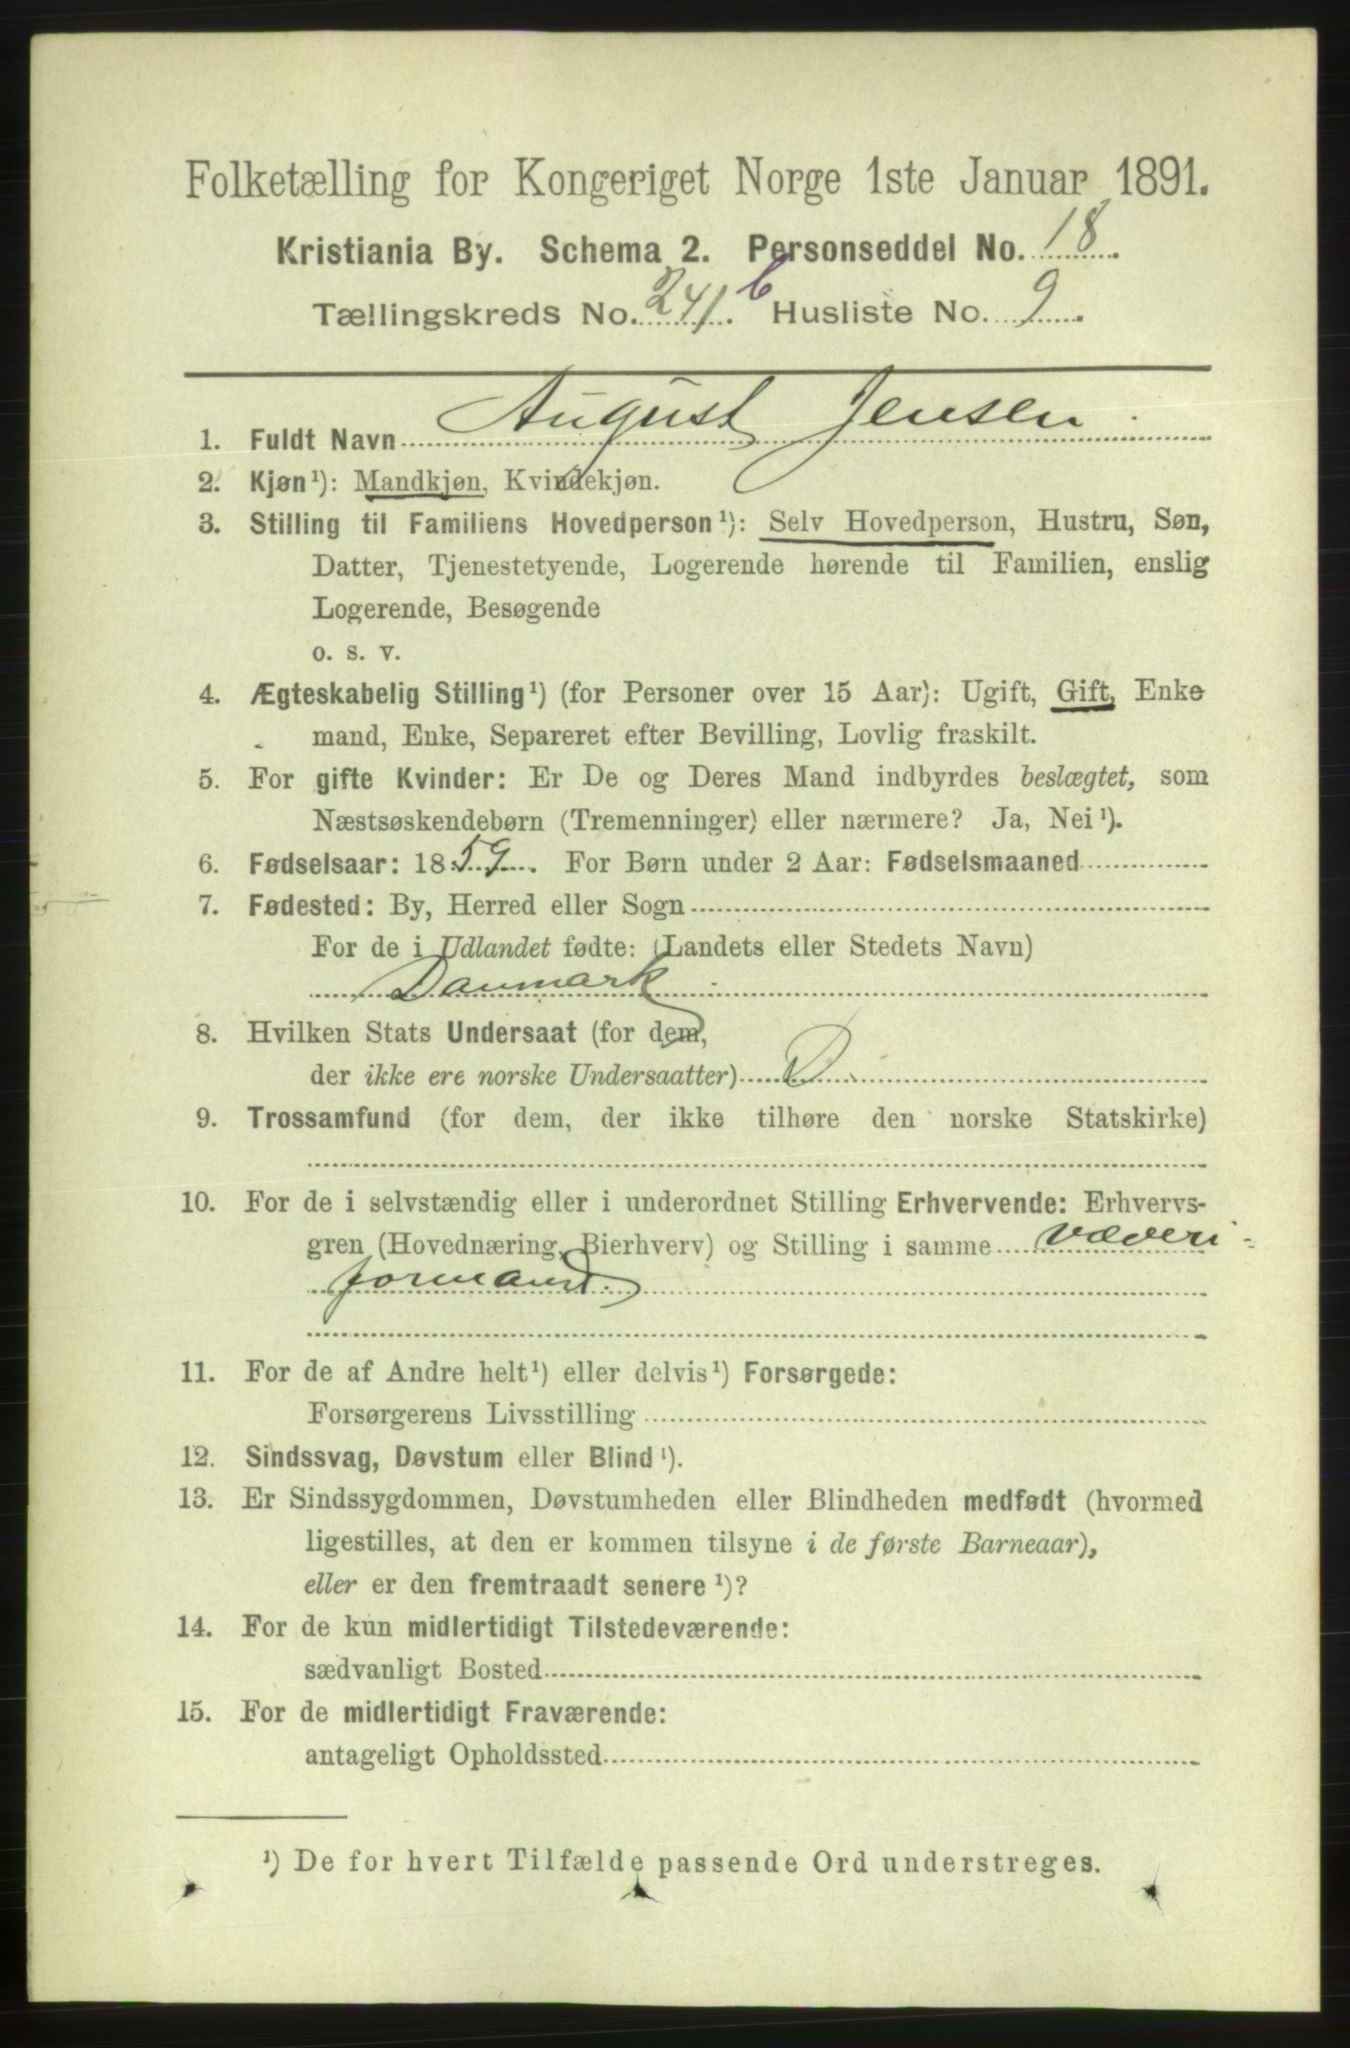 Folketælling for Kongeriget Norge 1ste Januar 1891.
Kristiania By. Schema 2. Personseddel No. 18.
Tællingskreds No. 241. b Husliste No. 9.
1. Fuldt Navn August Jensen.
2. Kjøn¹): Mandkjøn, Kvindekjøn.
3. Stilling til Familiens Hovedperson¹): Selv Hovedperson, Hustru, Søn,
Datter, Tjenestetyende, Logerende hørende til Familien, enslig
Logerende, Besøgende
o. s. v.
4. Ægteskabelig Stilling¹) (for Personer over 15 Aar): Ugift, Gift, Enke
mand, Enke, Separeret efter Bevilling, Lovlig fraskilt.
5. For gifte Kvinder: Er De og Deres Mand indbyrdes beslægtet, som
Næstsøskendebørn (Tremenninger) eller nærmere? Ja, Nei¹).
6. Fødselsaar: 1859. For Børn under 2 Aar: Fødselsmaaned
7. Fødested: By, Herred eller Sogn
For de i Udlandet fødte: (Landets eller Stedets Navn)
Danmark
8. Hvilken Stats Undersaat (for dem,
der ikke ere norske Undersaatter) D.
9. Trossamfund (for dem, der ikke tilhøre den norske Statskirke)
10. For de i selvstændig eller i underordnet Stilling Erhvervende: Erhvervs-
gren (Hovednæring, Bierhverv) og Stilling i samme Væveri-
formand.
11. For de af Andre helt¹) eller delvis¹) Forsørgede:
Forsørgerens Livsstilling
12. Sindssvag, Døvstum eller Blind¹).
13. Er Sindssygdommen, Døvstumheden eller Blindheden medfødt (hvormed
ligestilles, at den er kommen tilsyne i de første Barneaar),
eller er den fremtraadt senere¹)?
14. For de kun midlertidigt Tilstedeværende:
sædvanligt Bosted
15. For de midlertidigt Fraværende:
antageligt Opholdssted
¹) De for hvert Tilfælde passende Ord understreges.